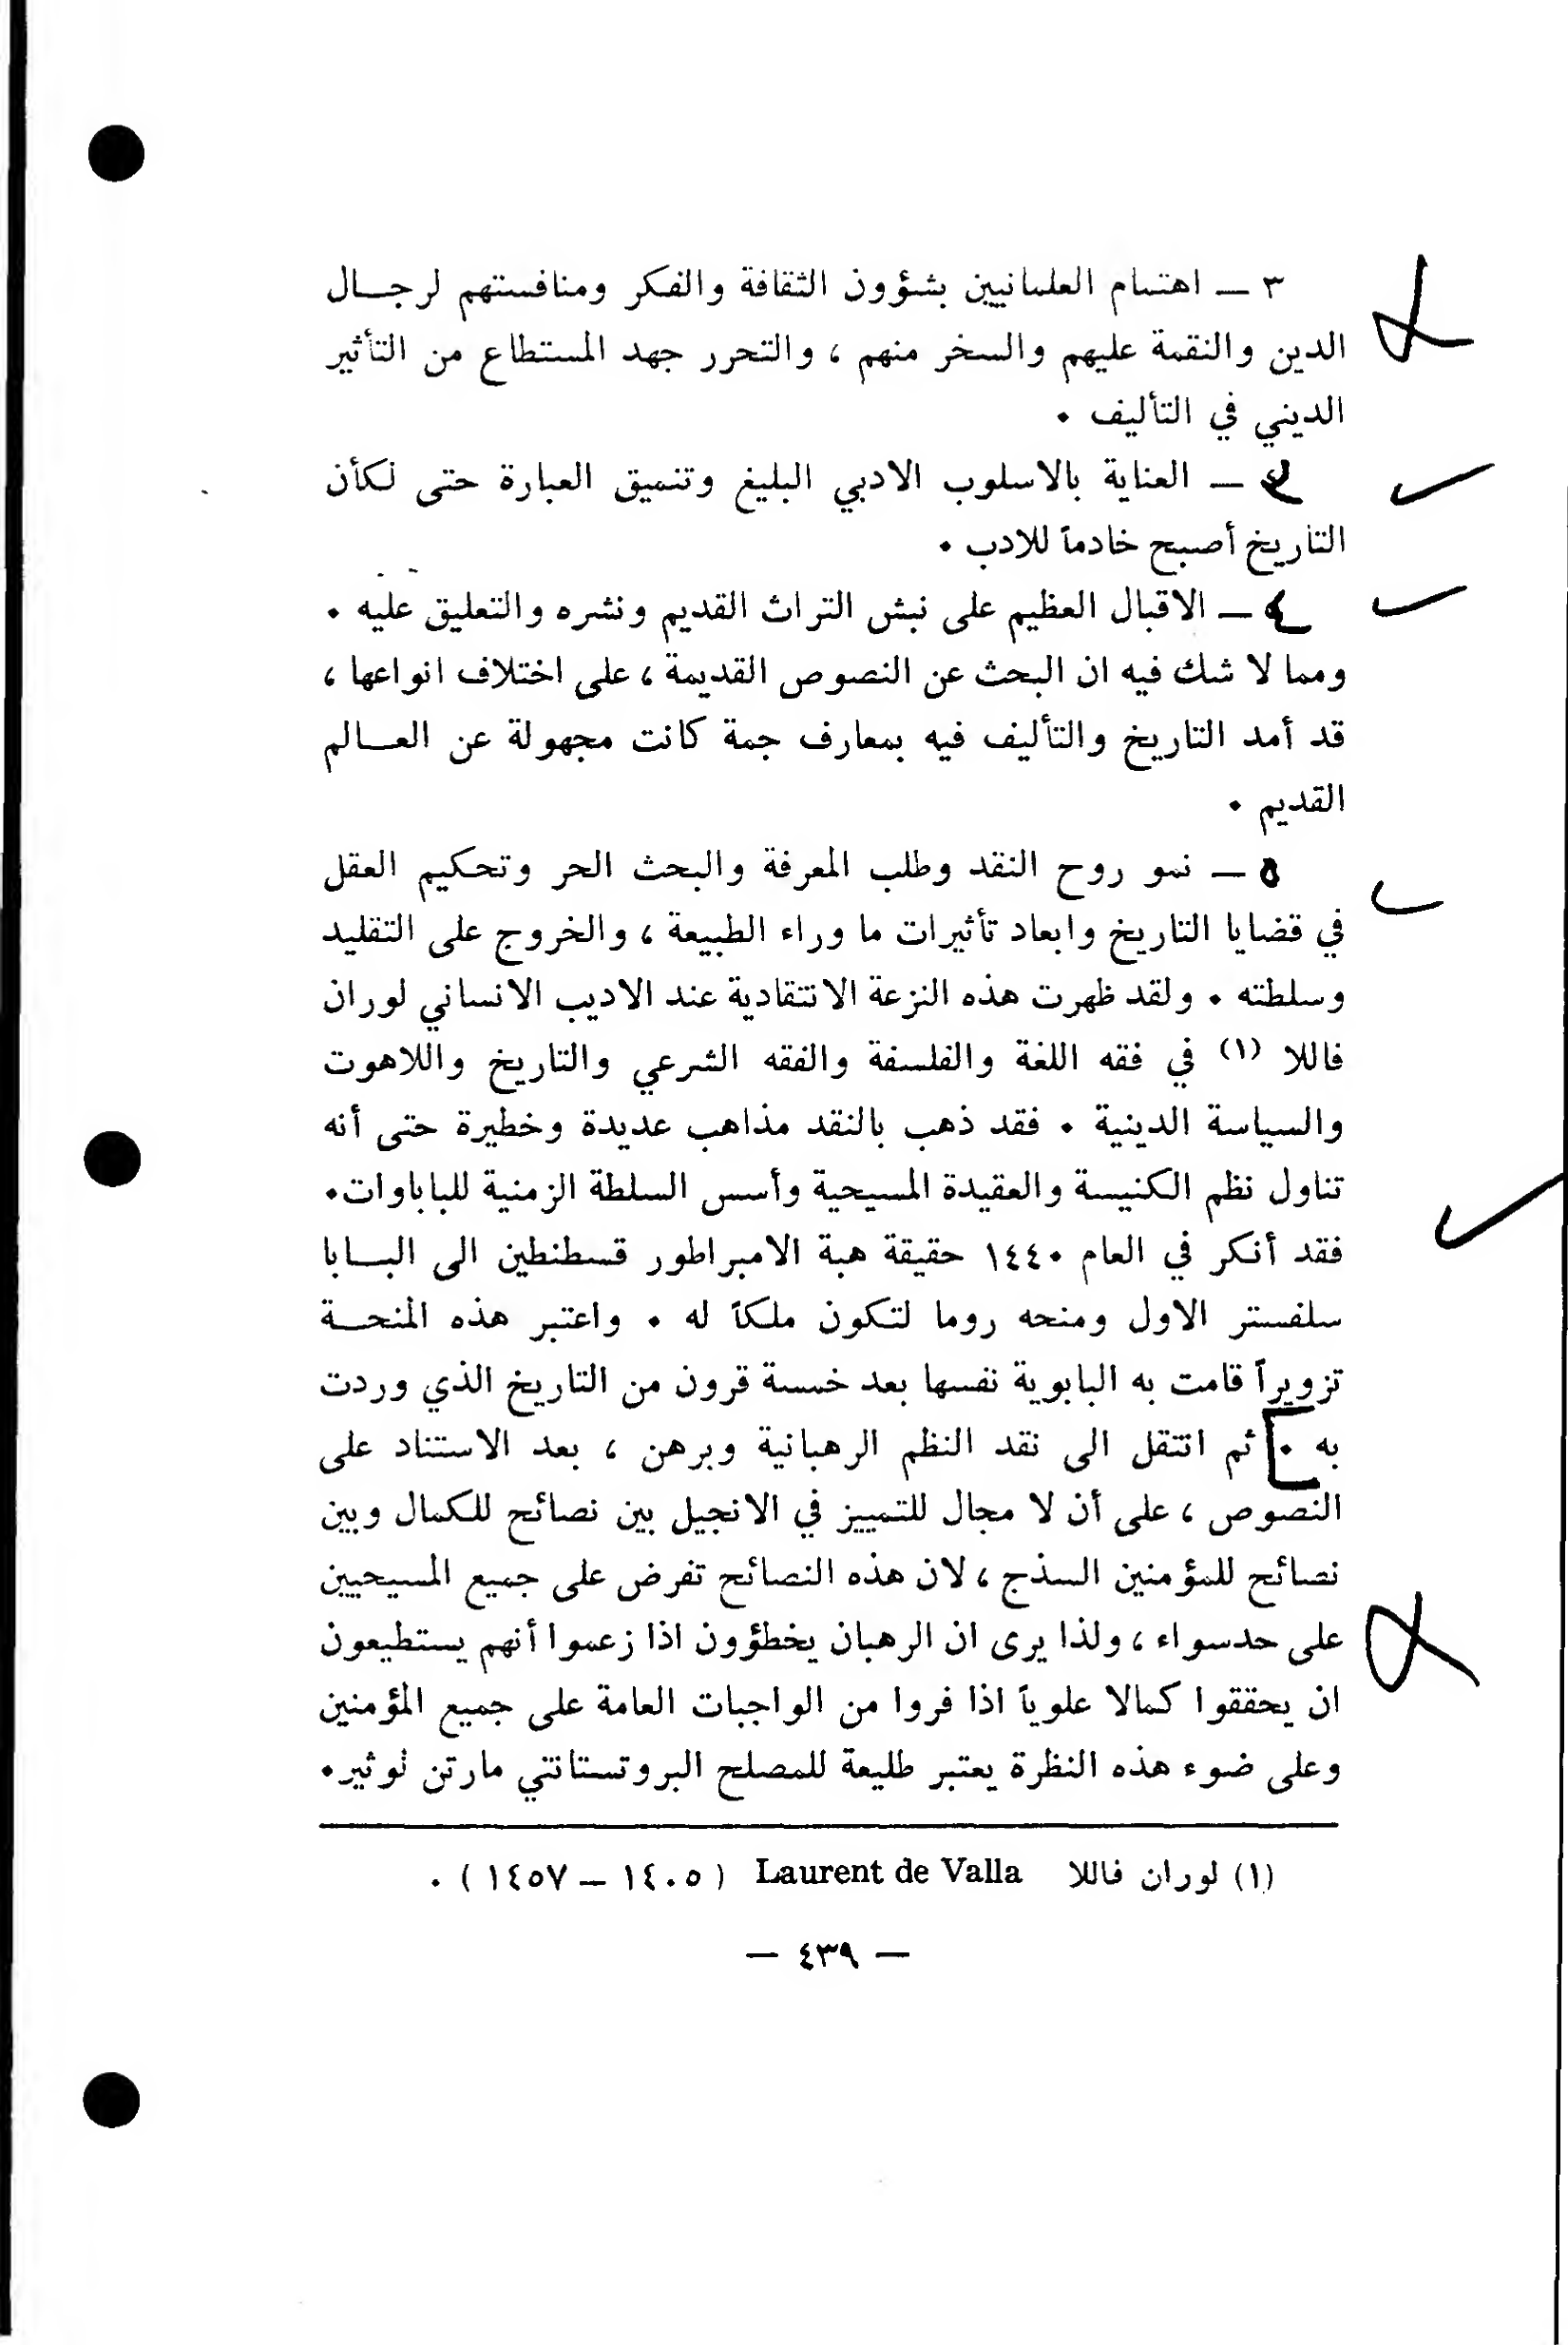 ٣ — اهتمام العلمانيين بشؤون الثقافة والفكر ومنافستهم لرجال
الدين والنقمة عليهم والسخر منهم ، والتحرر جهد المستطاع من التأثير
الديني في التأليف .
— العناية بالاسلوب الادبي البليغ وتنميق العبارة حتى لكأن
التاريخ أصبح خادماً للادب .
٤ — الاقبال العظيم على نبش التراث القديم ونشره والتعليق عليه .
ومما لا شك فيه ان البحث عن النصوص القديمة ، على اختلاف انواعها ،
قد أمد التاريخ والتأليف فيه بمعارف جمة كانت مجهولة عن العالم
القديم .
٥ — نمو روح النقد وطلب المعرفة والبحث الحر وتحكيم العقل
في قضايا التاريخ وابعاد تأثيرات ما وراء الطبيعة ، والخروج على التقليد
وسلطته . ولقد ظهرت هذه النزعة الانتقادية عند الاديب الانساني لوران
فاللا (١) في فقه اللغة والفلسفة والفقه الشرعي والتاريخ واللاهوت
والسياسة الدينية . فقد ذهب بالنقد مذاهب عديدة وخطيرة حتى أنه
تناول نظم الكنيسة والعقيدة المسيحية وأسس السلطة الزمنية للباباوات.
فقد أنكر في العام ١٤٤٠ حقيقة هبة الامبراطور قسطنطين الى البابا
سلفستر الاول ومنحه روما لتكون ملكاً له . واعتبر هذه المنحة
تزويراً قامت به البابوية نفسها بعد خمسة قرون من التاريخ الذي وردت
به . ثم انتقل الى نقد النظم الرهبانية وبرهن ، بعد الاستناد على
النصوص ، على أن لا مجال للتمييز في الانجيل بين نصائح للكمال وبين
نصائح للمؤمنين السذج ، لان هذه النصائح تفرض على جميع المسيحيين
على حدسواء ، ولذا يرى ان الرهبان يخطؤون اذا زعموا أنهم يستطيعون
ان يحققوا كمالا علوياً اذا فروا من الواجبات العامة على جميع المؤمنين
وعلى ضوء هذه النظرة يعتبر طليعة للمصلح البروتستانتي مارتن لوثير.
(١) لوران فاللا Laurent de Valla ( ١٤٠٥ — ١٤٥٧ ) .
— ٤٣٩ —